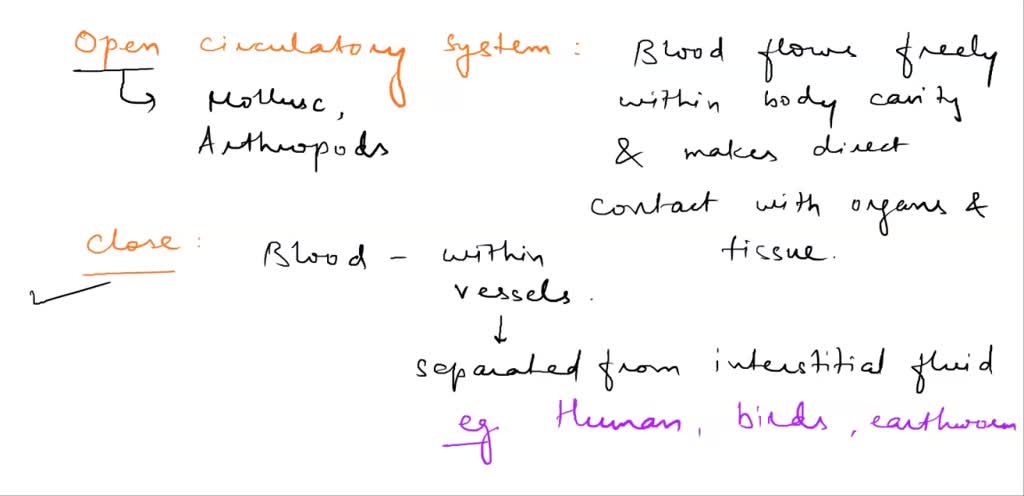 Open circulatory system : Blood flows freely
↳ Mollusc, within body cavity
Arthropods & makes direct
contact with organs &
tissue.
Close : Blood - within
vessels.
↓
separated from interstitial fluid
eg Human, birds, earthworm